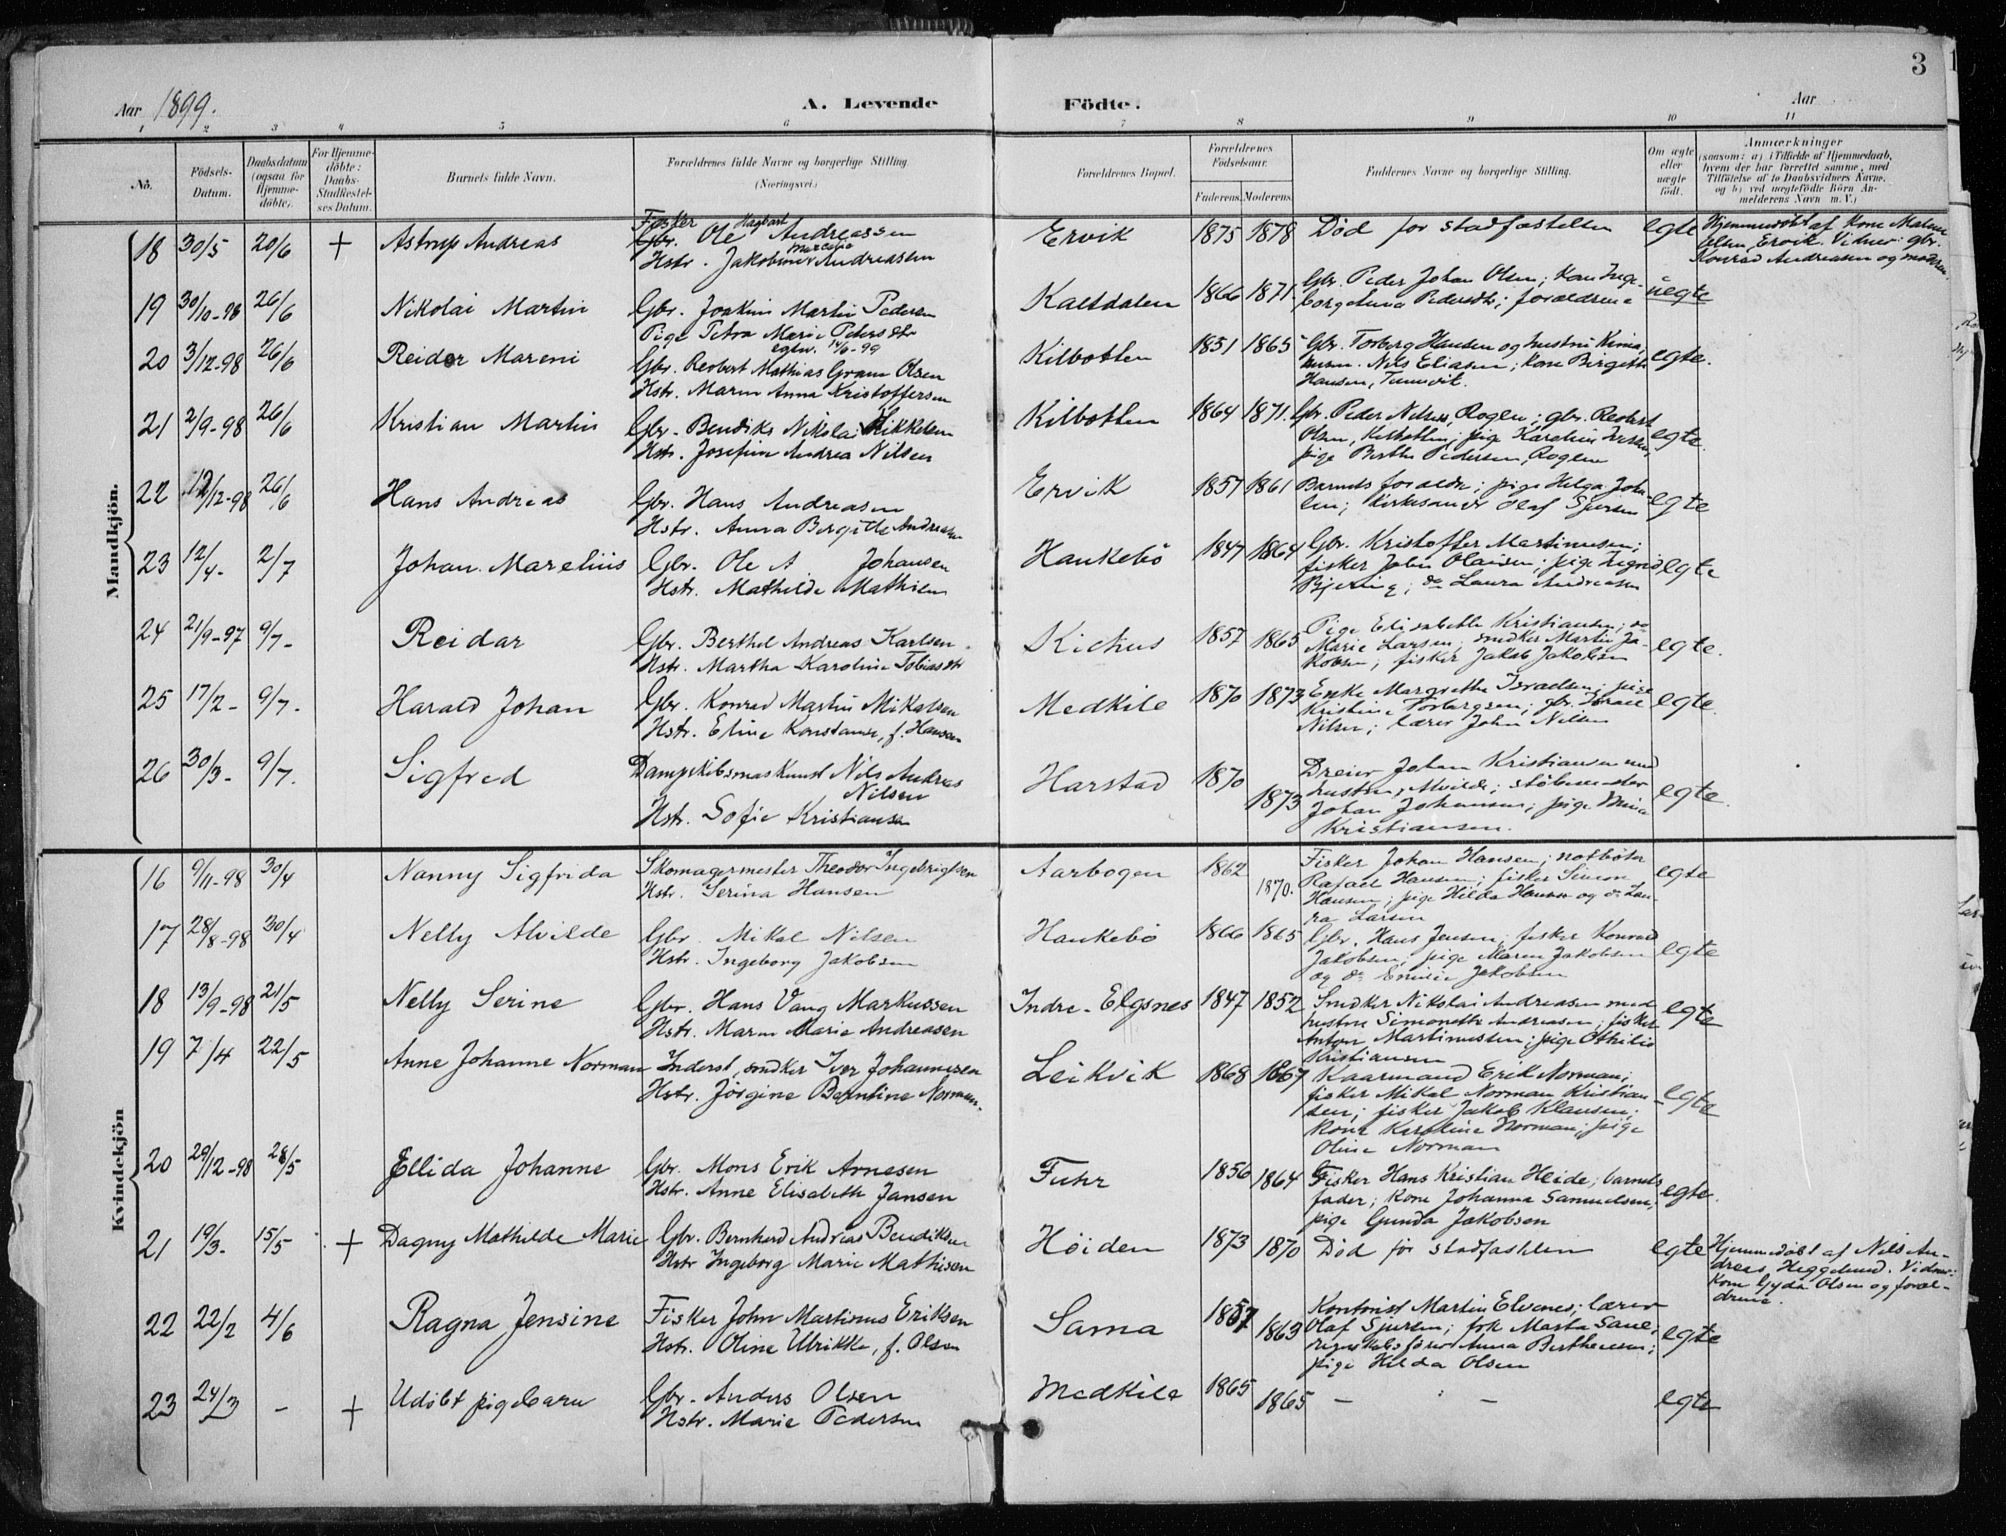 3
Aar 1899.
A. Levende Födte.
Aar
1 2 3 4 5 6 7 8 9 10 11
Nò.
Födsels-Datum.
Daabsdatum (ogsaa for Hjemme-döbte).
For Hjemme-döbte: Daabs-Stadfæstel-ses Datum.
Barnets fulde Navn.
Forældrenes fulde Navne og borgerlige Stilling (Næringsvei.)
Forældrenes Bopæl.
Forældrenes Födselsaar.
Faderens. Moderens.
Faddernes Navne og borgerlige Stilling.
Om ægte eller uægte født.
Anmærkninger
(saasom: a) i Tilfælde af Hjemmedaab,
hvem der har forrettet samme, med
Tilföielse af to Daabsvidners Navne,
og b) ved uægtefödte Börn An-
melderens Navn m. V.)
Mandkjön.
18 30/5 20/6 + Astrup Andreas
Fisker Hagbart
Gbr. Ole Andreassen
Hstr. Jakobine Andreassen
Ervik 1875 1878 Død før stadfæstelsen egte
Hjemmedøbt af Kone
Olsen, Ervik. Vidner: gbr.
Konrad Andreasen og moderen.
19 30/10-98 26/6 Nikolai Martin
Gbr. Joakim Martin Pedersen
Pige Petra Marie Petersdtr
egtev. 14/6-99
Kaltdalen 1866 1871.
Gbr. Peder Johan Olsen; Kone Inge-
borg Anna Pedersdtr; forældrene
uegte
20 3/12-98 26/6 Reidar Mareni
Gbr. Reobert Mathias Gram Olsen
Hstr. Maren Anna Kristoffersen
Kilbotten 1851 1865
Gbr. Torberg Hansen og hustru Kima;
Nils Eliasen; Kone Birgitte
Hansen,
egte.
21 2/9-98 26/6 Kristian Martin
Gbr. Bendiks Nikolai Mikkelsen
Hstr. Josefine Andrea Nilsen
Kilbotten 1864 1871.
Gbr. Peder Nilsen, Rogla; gbr. Reobert
Olsen, Kilbotten; pige Karoline
pige Berthe Pedersen, Rogla
egte
22 12/12-98 26/6 Hans Andreas
Gbr. Hans Andreasen
Hstr. Anna Birgitte Andreasen
Ervik 1857 1861
Barnets forældre; pige Helga Joha-
sen; Kirkesanger Olaf Sjursen
egte
23 12/4- 2/7 Johan Marelius
Gbr. Ole A Johansen
Hstr. Mathilde Mathisen
Haukebø 1847 1864
Gbr. Kristoffer Martinusen;
fisker John Olaisen; pige Sigrid
Bjering; do Laura Andreasen
egte
24 21/9-97 9/7- Reidar
Gbr. Berthel Andreas Karlsen
Hstr. Martha Karoline Tobiasdtr
Kichus 1857 1865
Pige Elisabeth Kristiansen; do
Marie Larsen; snedker Martin Ja-
kobsen; fisker Jakob Jakobsen
egte.
25 17/2- 9/7- Harald Johan
Gbr. Konrad Martin Mikalsen
Hstr. Eline Konstanse, f. Hansen
Medkile 1870 1873
Enke Margrethe Israelsen; pige
Kristine Torbergsen; gbr. Israel
Nilsen; lærer John Nilsen
egte.
26 30/3- 9/7. Sigfred
Dampskibsmaskinist Nils Andreas
Nilsen
Hstr. Sofie Kristiansen
Harstad 1870 1873
Dreier Johan Kristiansen med
hustru, Alvilde; støbemester
Johan Johansen; pige
Kristiansen.
egte
Kvindekjön
16 9/11-98 30/4 Nanny Sigfrida
Skomagermester Theodor Ingebrigtsen
Hstr. Serina Hansen
Aarbogen 1862 1870.
Fisker Johan Hansen; notbøter
Rafael Hansen; fisker Simon
Hansen; pige Hilda Hansen og do Lau-
ra Larsen
egte
17 28/8-98 30/4 Nelly Alvilde
Gbr. Mikal Nilsen
Hstr. Ingeborg Jakobsen
Haukebø 1866 1865
Gbr. Hans Jensen; fisker Konrad
Jakobsen; pige Maren Jakobsen
og do Emilie Jakobsen
egte
18 13/9-98 21/5 Nelly Serine
Gbr. Hans Vang Markussen
Hstr. Maren Marie Andreasen
Indre-Elgsnes 1847 1852
Snedker Nikolai Andreasen med
hustru Simonette Andreasen; fisker
Anton Martinussen; pige Othilie
Kristiansen
egte
19 7/4 22/5 Anne Johanne Norman
Inderst, snedker Iver Johannesen
Hstr. Jørgine Berntine Norman.
Leikvik 1868 1867
Kaarmand Erik Norman;
fisker Mikal Norman Kristian-
sen; fisker Jakob Klausen;
Kone Karoline Norman; pige
Oline Norman
egte
20 29/12-98 28/5 Ellida Johanne
Gbr. Mons Erik Arnesen
Hstr. Anne Elisabeth Jansen
Fuhr 1856 1864
Fisker Hans Kristian Heide; barnets
fader; Kone Johanna Samuelsen;
pige Gunda Jakobsen
egte.
21 19/3- 15/5 + Dagny Mathilde Marie
Gbr. Bernhard Andreas Bendiksen
Hstr Ingeborg Marie Mathisen
Høiden 1873 1870 Død før stadfæstelsen egte
Hjemmedøbt af Nils An-
dreas Heggelund. Vidner:
Kone Gyda Olsen og foræl-
drene.
22 22/2 4/6 Ragna Jensine
Fisker John Martinus Eriksen
Hstr. Oline Ulrikke, f. Olsen
Sama 1867 1863
Kontorist Martin Elvenes; lærer
Olaf Sjursen; frk Marta Sane;
regnskabsfører Anna Bertheussen;
pige Hilda Olsen
egte
23 24/3 - + Udøbt pigebarn
Gbr. Anders Olsen
Hstr. Marie Pedersen
Medkile 1865 1865 - - egte